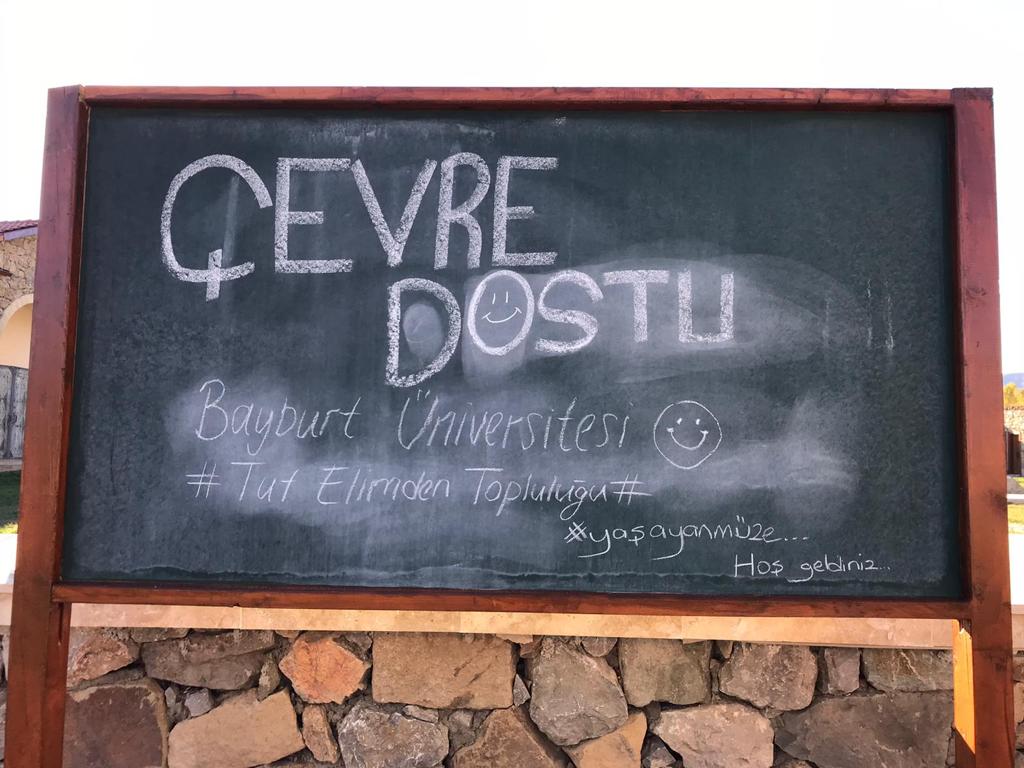 ÇEVRE
DOSTU
Bayburt Üniversitesi
# Tut Elimden Topluluğu #
#yaşayanmüze...
Hoş geldiniz...